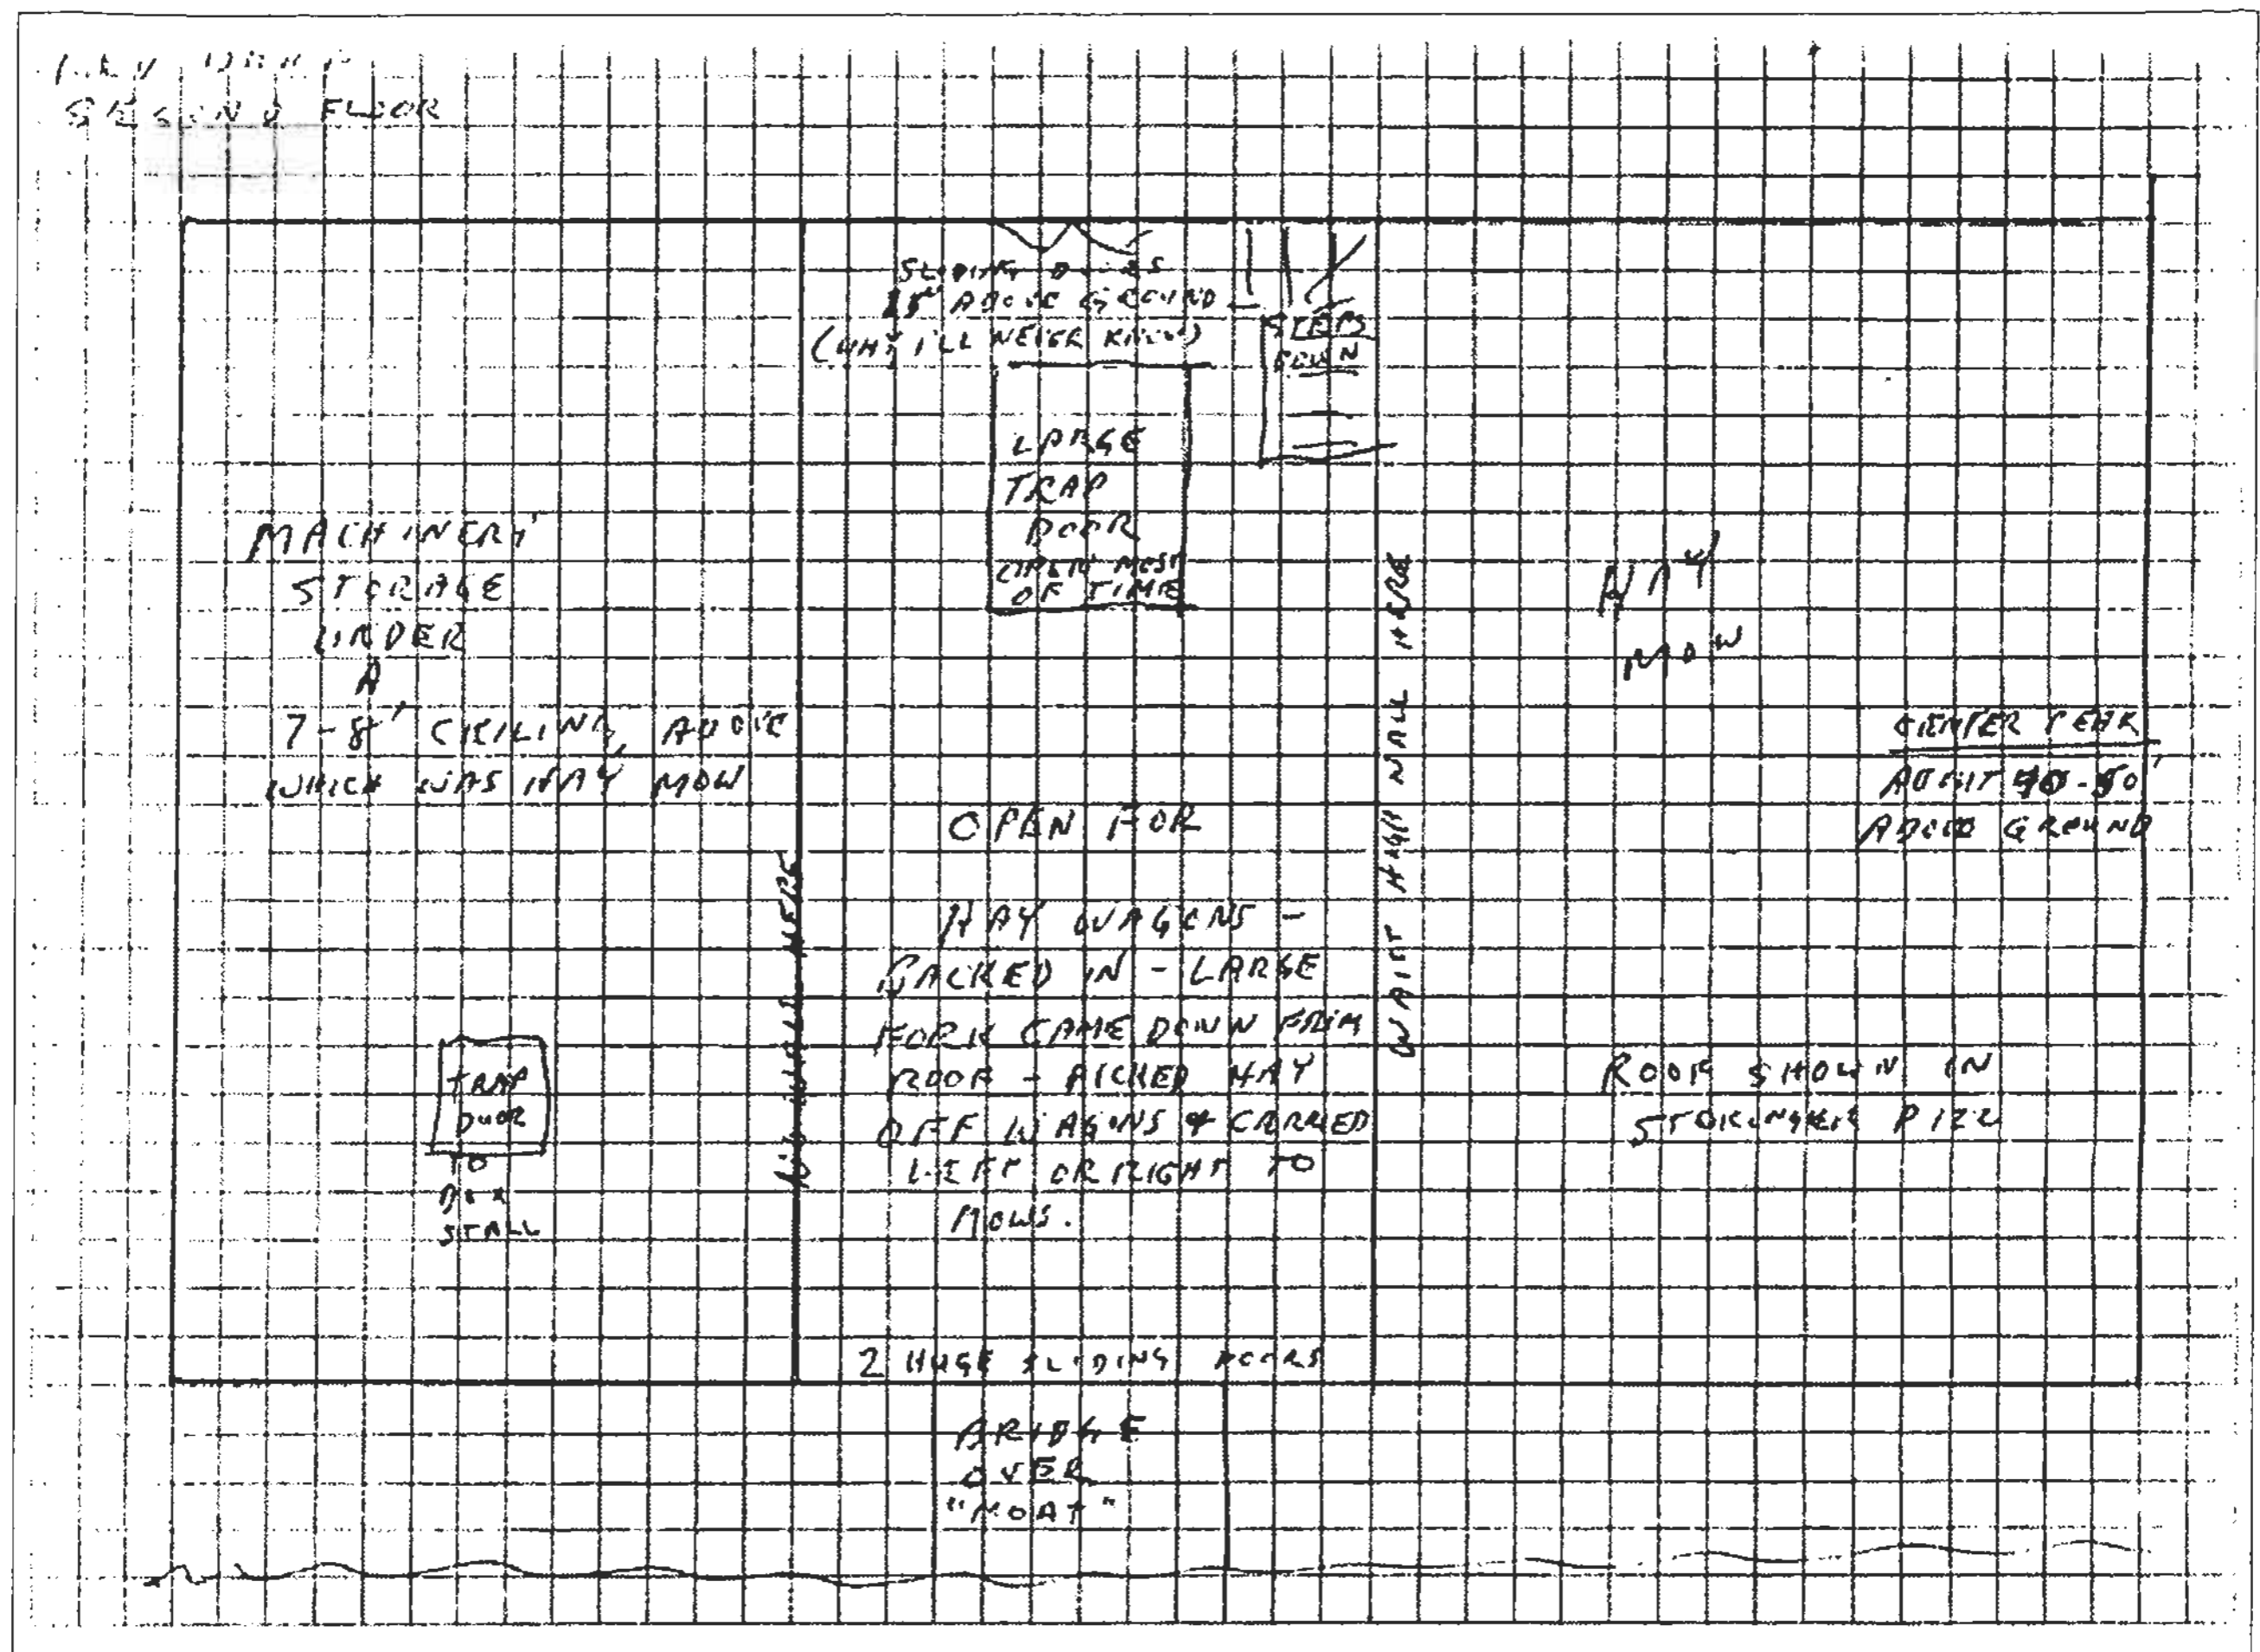 SECOND FLOOR
SLIDING DOORS
15" ABOVE GROUND -
(WHY I'LL NEVER KNOW)
STEPS
DOWN
LARGE
TRAP
DOOR
OPEN MOST
OF TIME
MACHINERY
STORAGE
UNDER
A
7-8' CEILING, ABOVE
WHICH WAS HAY MOW
TRAP
DOOR
TO
BOX
STALL
WALL HERE
OPEN FOR
HAY WAGONS -
BACKED IN - LARGE
FORK CAME DOWN FROM
ROOF - PICKED HAY
OFF WAGONS & CARRIED
LEFT OR RIGHT TO
MOWS.
WAIST HIGH WALL HERE
HAY
MOW
CENTER PEAK
ABOUT 40-50'
ABOVE GROUND
ROOF SHOWN IN
P 122
2 HUGE SLIDING DOORS
BRIDGE
OVER
"MOAT"